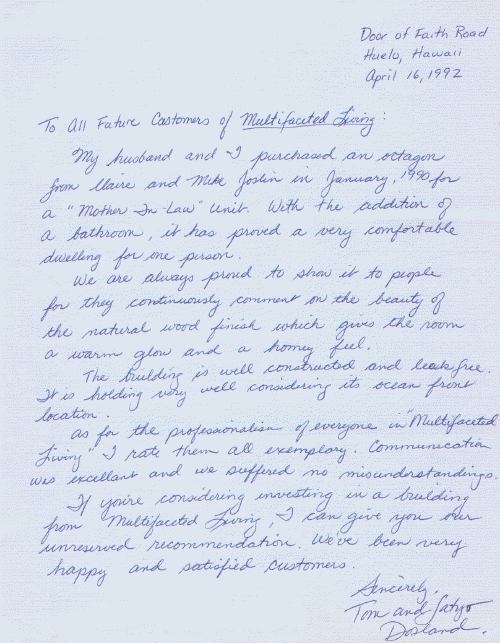 Door of Faith Road
Huelo, Hawaii
April 16, 1992
To All Future Customers of Multifaceted Living:
My husband and I purchased an octagon
from Claire and Mike Joslin in January, 1990 for
a "Mother-In-Law" Unit. With the addition of
a bathroom, it has proved a very comfortable
dwelling for one person.
We are always proud to show it to people
for they continuously comment on the beauty of
the natural wood finish which gives the room
a warm glow and a homey feel.
The building is well constructed and leak free.
It is holding very well considering its ocean front
location.
As for the professionalism of everyone in "Multifaceted
Living" I rate them all exemplary. Communication
was excellant and we suffered no misunderstandings.
If you're considering investing in a building
from Multifaceted Living, I can give you our
unreserved recommendation. We've been very
happy and satisfied customers.
Sincerely,
Tom and
Dosland.